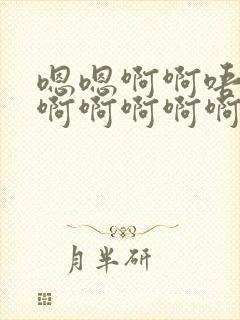 嗯嗯啊啊唔
啊啊啊啊啊
月半研